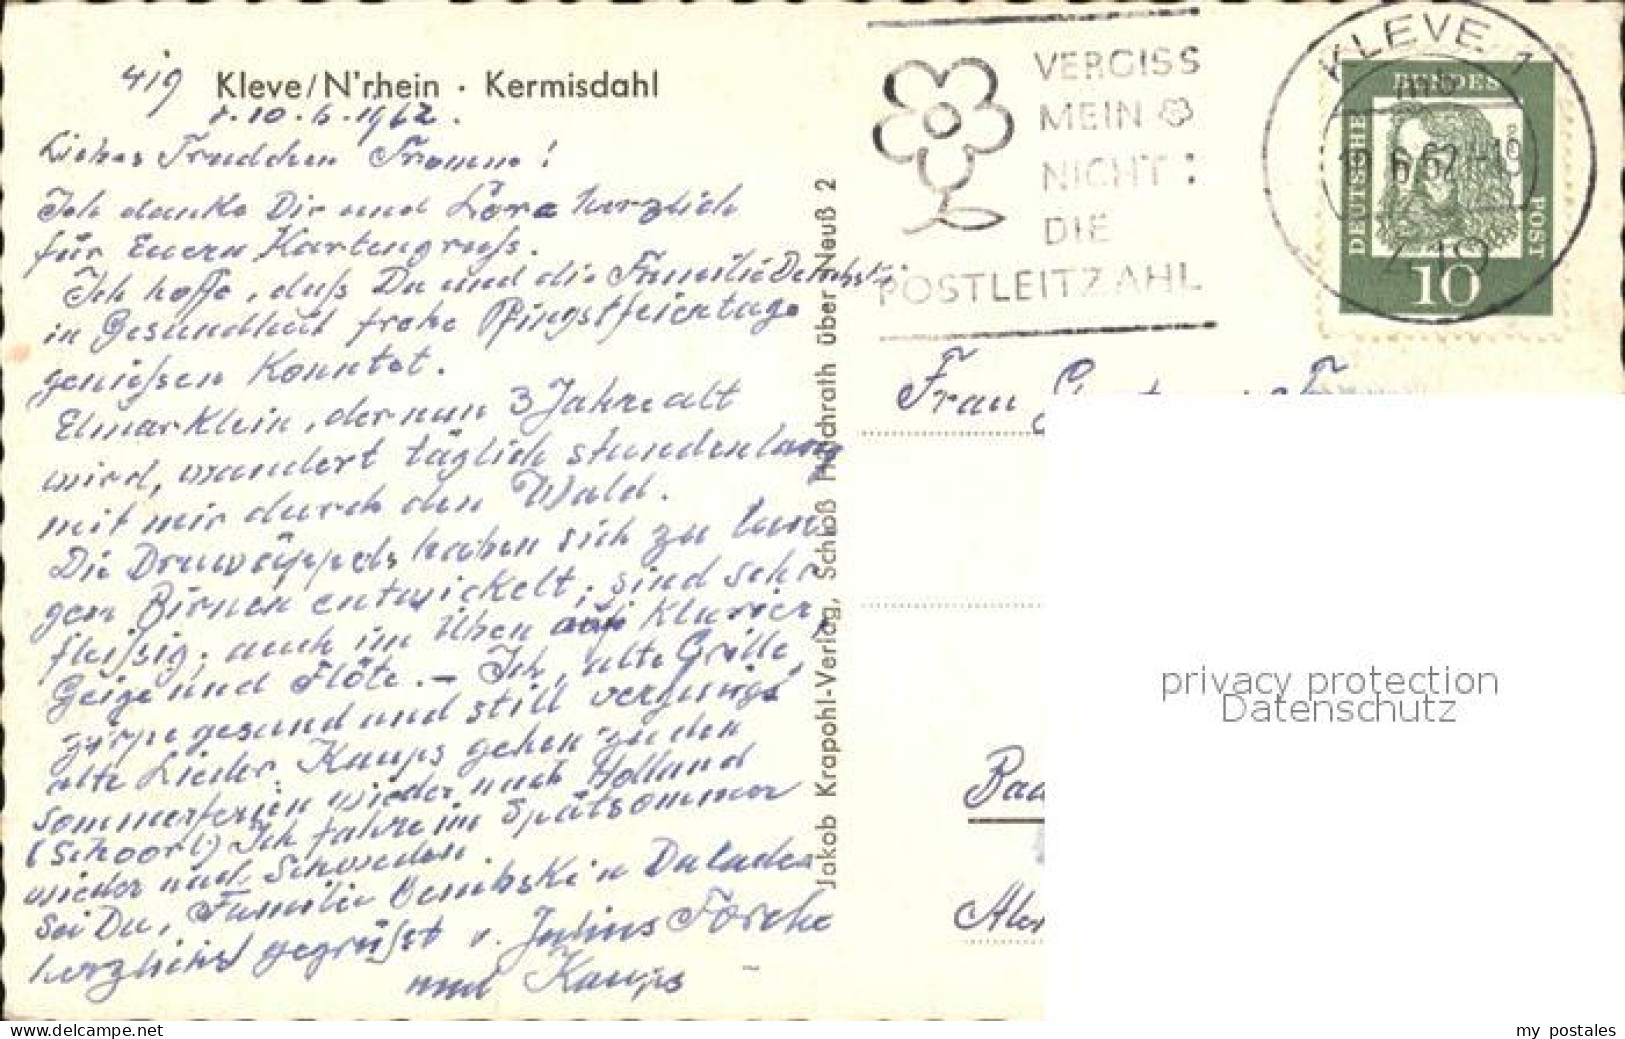 419 Kleve/N'rhein · Kermisdahl
10.6.1962.
Liebes Trudchen Fromm!
Ich danke Dir und Lore herzlich
für Euern Kartengruss.
Ich hoffe, daß Du und die Familie
in Gesundheit frohe Pfingstfeiertage
genießen konntet.
Elmar Klein, der nun 3 Jahre alt
wird, wandert täglich stundenlang
mit mir durch den Wald.
Die haben sich zu lan
gen Birnen entwickelt, sind sehr
fleißig, auch im Üben Klavier,
Geige und Flöte. – Ich, alte Grille,
zirpe gesund und still vergnügt
alte Lieder. Kaups gehen zu den
Sommerferien wieder nach Holland
(Schoorl) Ich fahre im Spätsommer
wieder nach Schweden.
Sei Du, Familie
herzlichst gegrüßt v. Julius
und Kaups
Jakob Krapohl-Verlag, Schloß Hülchrath über Neuß 2
VERGISS
MEIN
NICHT:
DIE
POSTLEITZAHL
KLEVE 1
419
DEUTSCHE
BUNDES
POST
10
Frau
Bad
privacy protection
Datenschutz
www.delcampe.net
my postales